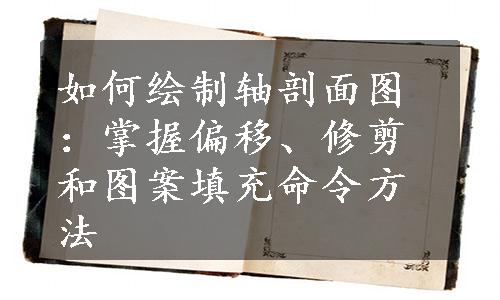 如何绘制轴剖面图
：掌握偏移、修剪
和图案填充命令方
法